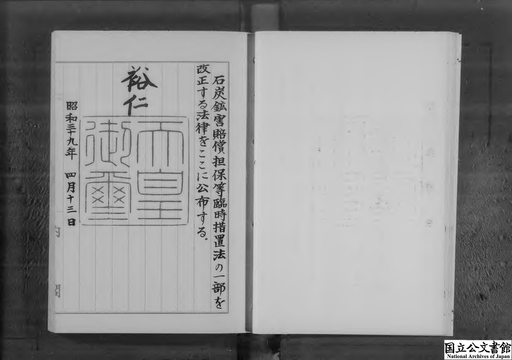 石炭鉱害賠償担保等臨時措置法の一部を
改正する法律をここに公布する。
裕仁
天皇御璽
昭和三十九年 四月十三日
国立公文書館
National Archives of Japan